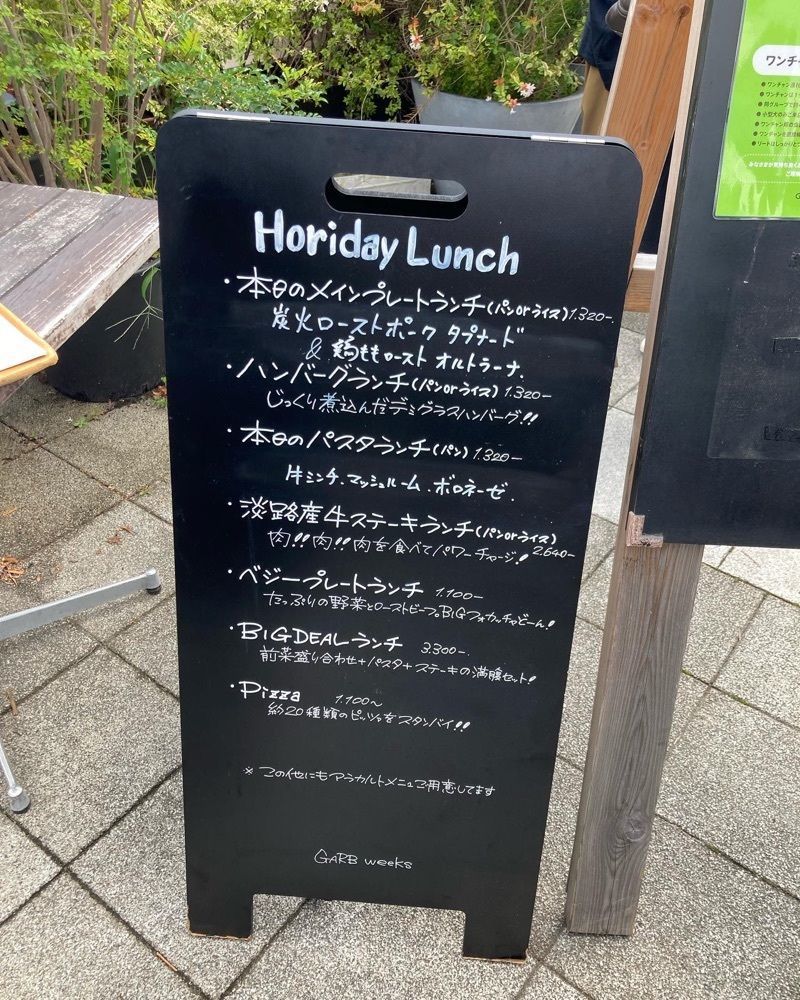 Horiday Lunch
・本日のメインプレートランチ(パンorライス)1.320-
炭火ローストポーク タプナード
& 鶏ももロースト オルトラーナ.
・ハンバーグランチ(パンorライス)1.320-
じっくり煮込んだデミグラスハンバーグ!!
・本日のパスタランチ(パン)1.320-
牛ミンチ、マッシュルーム、ボロネーゼ.
・淡路産牛ステーキランチ(パンorライス)
肉!!肉!!肉を食べてパワーチャージ! 2.640-
・ベジープレートランチ 1.100-
たっぷりの野菜とローストビーフ。BIGフォカッチャどーん!
・BIGDEALランチ 3.300-
前菜盛り合わせ+パスタ+ステーキの満腹セット!
・Pizza 1.100~
約20種類のピッツァをスタンバイ!!
※この他にもアラカルトメニューご用意してます
GARB weeks
ワンチ